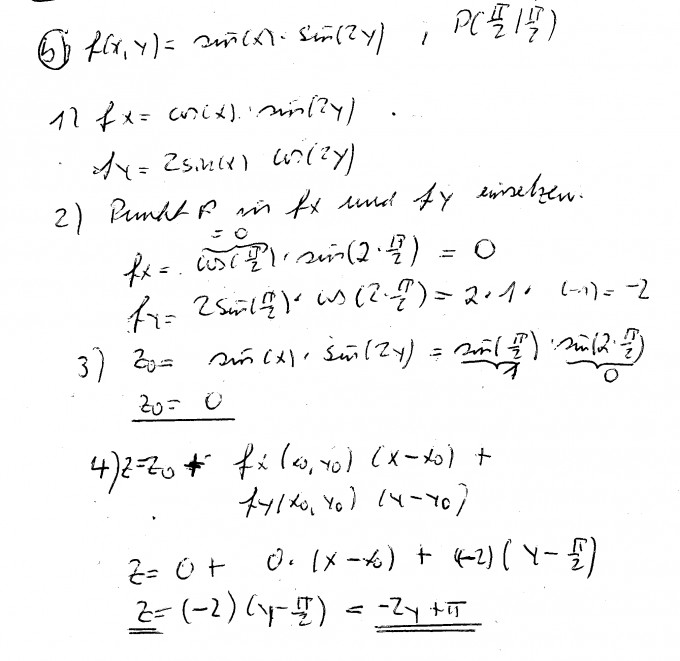 5) f(x,y) = sin(x) · sin(2y) , P(π/2 | π/2)
1) fx = cos(x) · sin(2y)
fy = 2sin(x) cos(2y)
2) Punkt P in fx und fy einsetzen.
= 0
fx = cos(π/2) · sin(2·π/2) = 0
fy = 2sin(π/2) · cos(2·π/2) = 2·1·(-1) = -2
3) z0 = sin(x) · sin(2y) = sin(π/2) · sin(2·π/2)
1 0
z0 = 0
4) z = z0 + fx(x0,y0) (x-x0) +
fy(x0,y0) (y-y0)
z = 0 + 0·(x-x0) + (-2)(y-π/2)
z = (-2)(y-π/2) = -2y+π